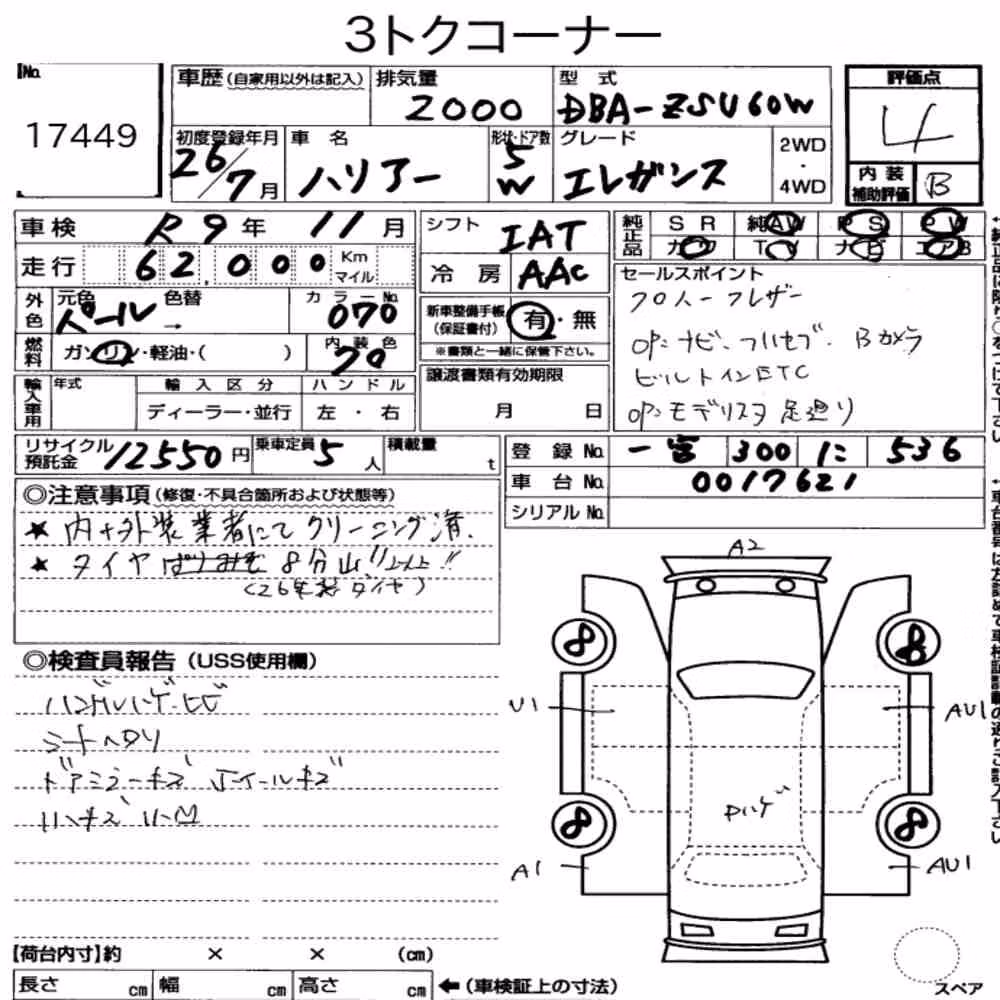 3トクコーナー
No.
17449
車歴 (自家用以外は記入)
排気量
2000
型 式
DBA-ZSU60W
評価点
4
初度登録年月
26/7月
車 名
ハリアー
形状・ドア数
5
W
グレード
エレガンス
2WD
・
4WD
内 装
補助評価
B
車検 R9年 11月
走行 62,000 Km
マイル
シフト IAT
冷 房 AAC
純正品
S R 純AW P S P W
カワ T V ナビ エアB
外色
元色 パール 色替 →
カラーNo. 070
燃料
ガソリン・軽油・( )
内 装 色 70
新車整備手帳
(保証書付)
有・無
※書類と一緒に保管下さい。
セールスポイント
フロムーフレザー
OP:ナビ フルセグ Bカメラ
ビルトインETC
OP:モデリスタ 足廻り
輸入車用
年式
輸 入 区 分
ディーラー・並行
ハ ン ド ル
左 ・ 右
譲渡書類有効期限
月 日
リサイクル
預託金 12550円
乗車定員 5人
積載量 t
登 録 No. 一宮 300 に 536
車 台 No. 0017621
シリアルNo.
◎注意事項 (修復・不具合箇所および状態等)
★ 内+外装業者にてクリーニング済.
★ タイヤ 8分山以上!!
(26年製タイヤ)
◎検査員報告 (USS使用欄)
ハンドルハゲ・ヒビ
シートヘタリ
ドアミラーキズ ホイールキズ
リハキズ リハM
A2
8
8
U1
AU1
Rハゲ
8
8
A1
AU1
スペア
【荷台内寸】約 × × (cm)
長さ cm 幅 cm 高さ cm ←(車検証上の寸法)